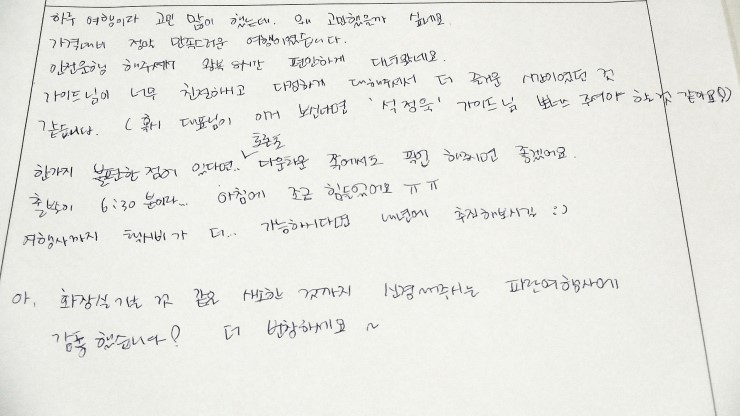 하루 여행이라 고민 많이 했는데. 왜 고민했을까 싶네요.
가격대비 정말 만족스러운 여행이었습니다.
안전운행 해주셔서 왕복 8시간 편안하게 다녀왔네요.
가이드님이 너무 친절하시고 다정하게 대해주셔서 더 즐거운 시간이었던 것
같습니다. (혹시 대표님이 이거 보신다면 '석정욱' 가이드님 뽀나스 주셔야 하는 것 같아요)
출근도
한가지 불편한 점이 있다면.. 다운타운 쪽에서도 픽업 해주시면 좋겠어요.
출발이 6:30 분이라... 아침에 조금 힘들었어요 ㅠㅠ
여행사까지 택시비가 더... 가능하시다면 내년에 추진해보시길 :)
아, 화장실 가는 것 같은 세세한 것까지 신경써주시는 파란여행사에
감동했습니다? 더 번창하세요 ~